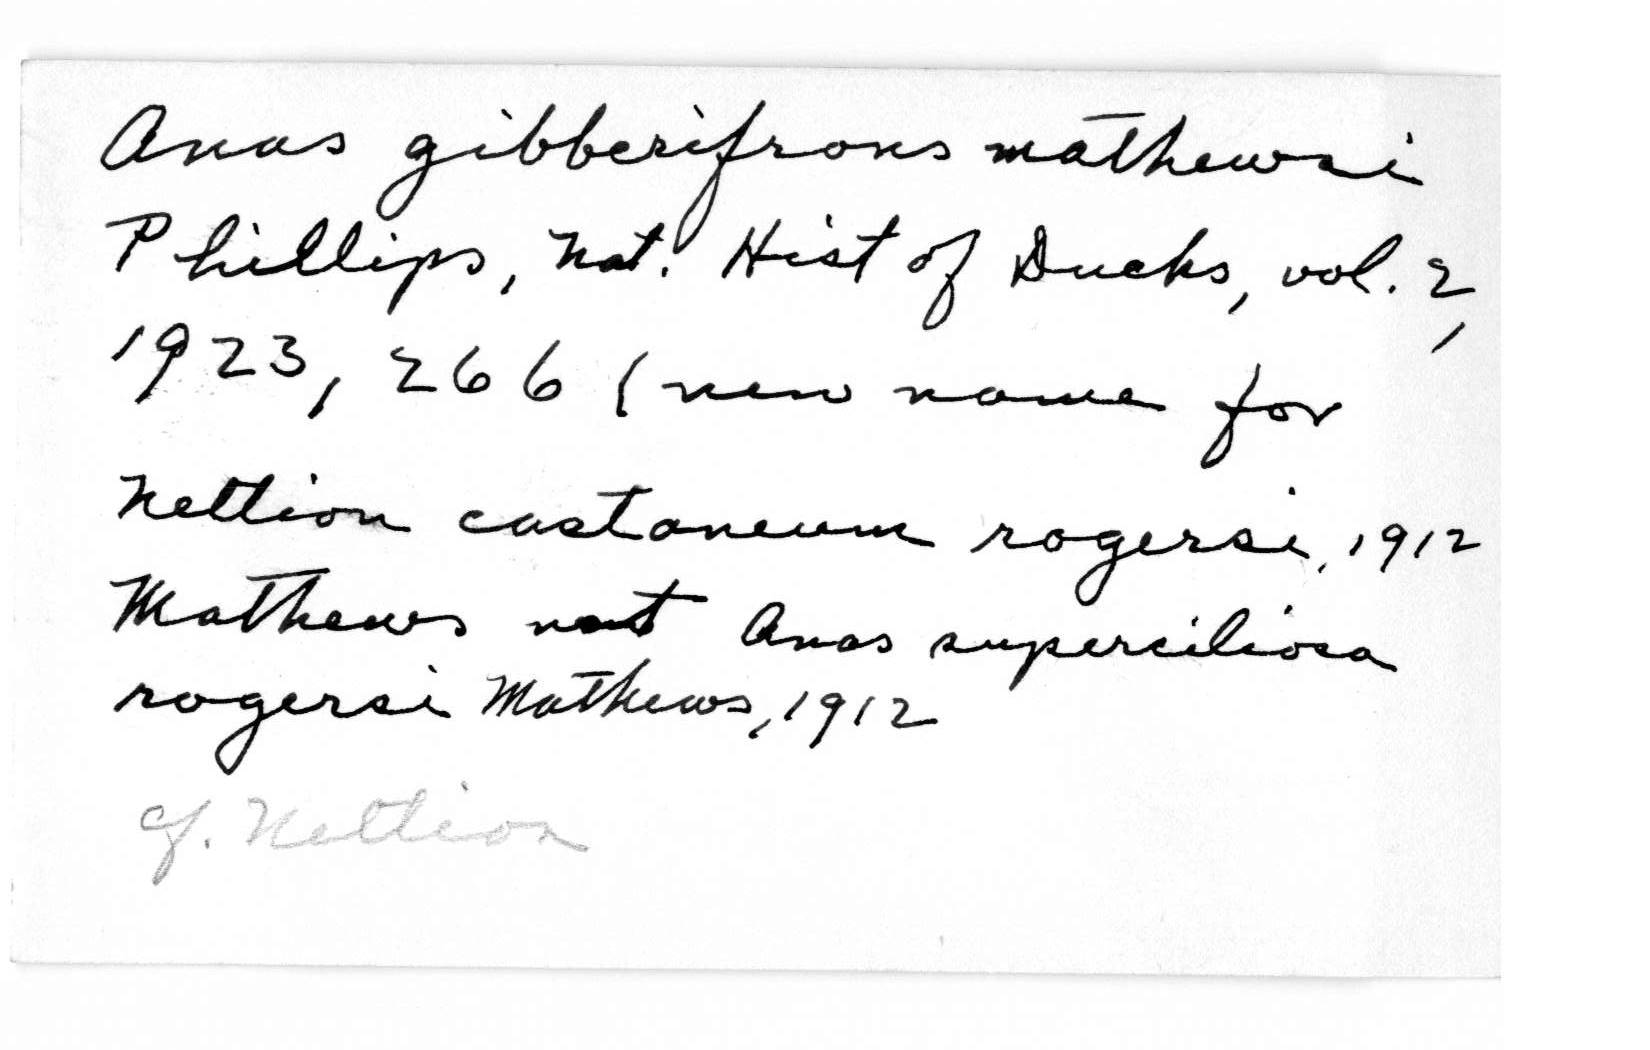 Anas gibberifrons mathewsi
Phillips, Nat. Hist of Ducks, vol. 2,
1923, 266 (new name for
Nettion castaneum rogersi, 1912
Mathews not Anas superciliosa
rogersi Mathews, 1912
cf. Nettion